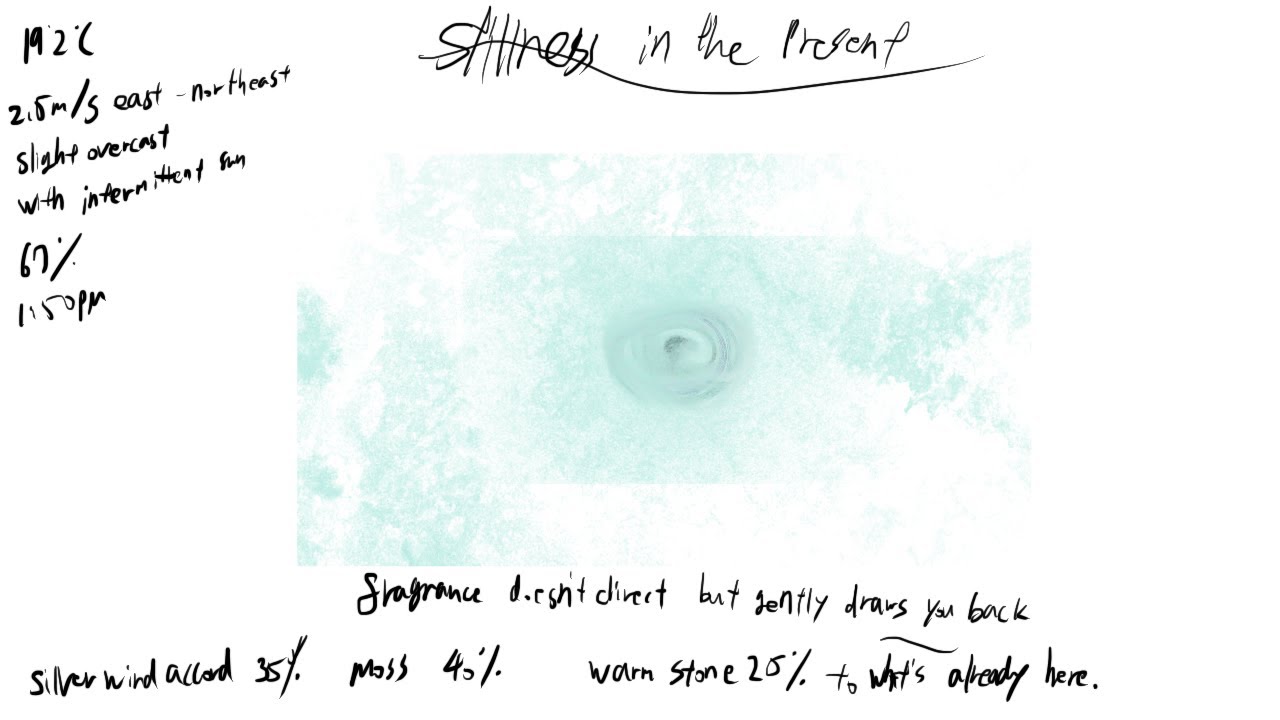 Stillness in the Present
19.2°C
2.5m/s east-northeast
slight overcast
with intermittent sun
67%
1:50pm
fragrance doesn't direct but gently draws you back
to what's already here.
silver wind accord 35% moss 40% warm stone 25%